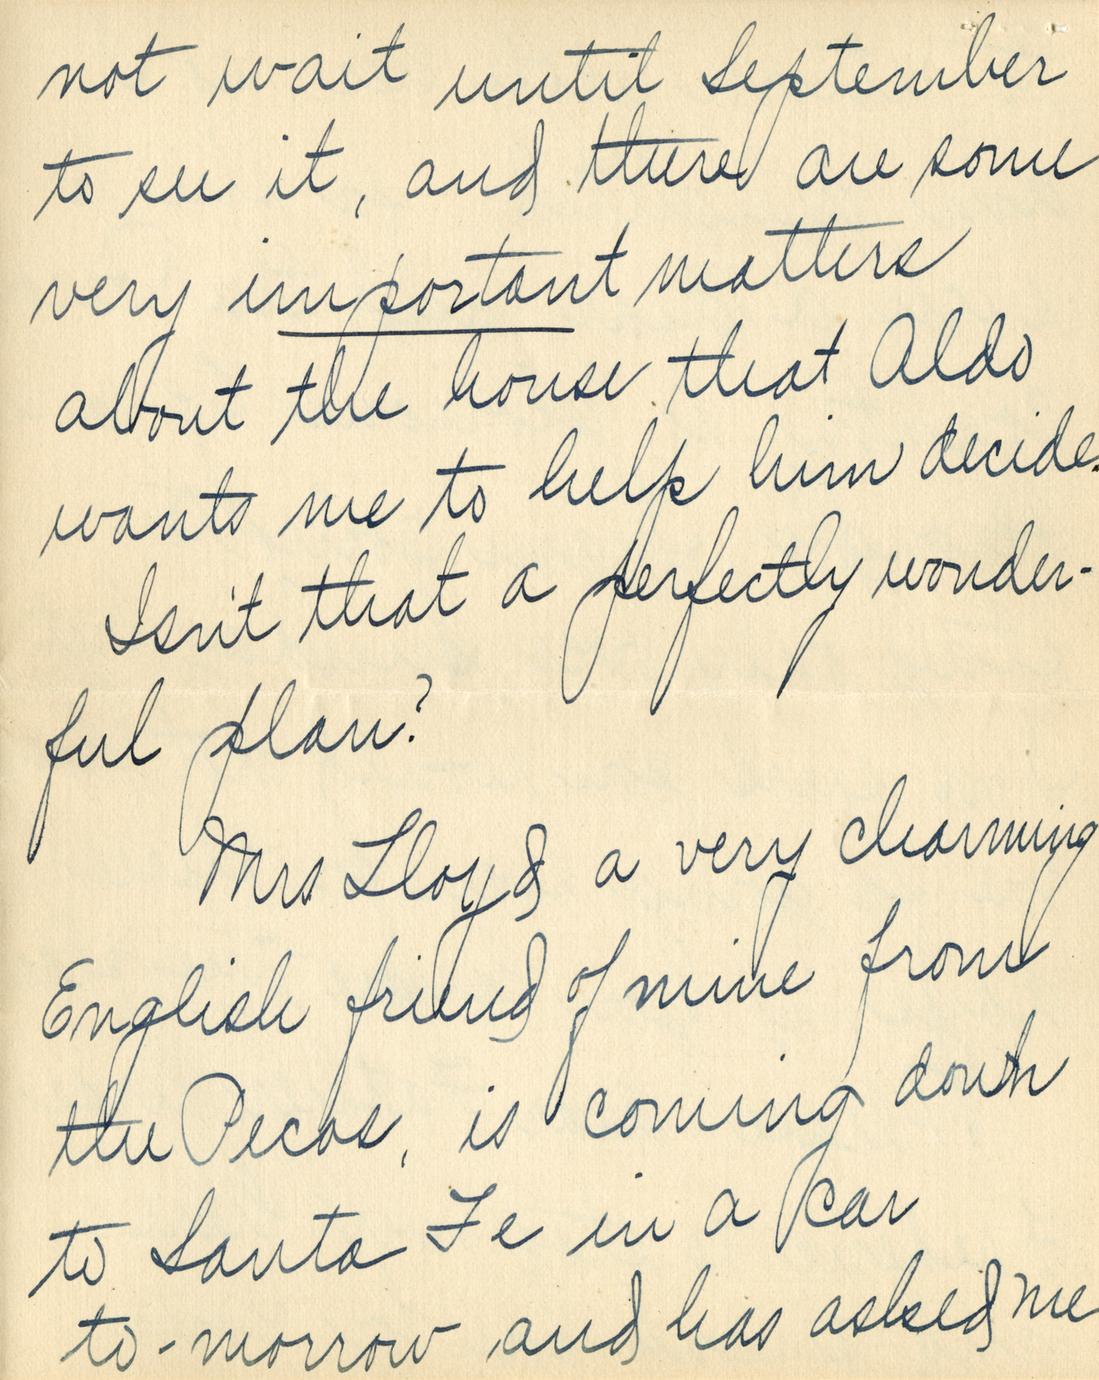 not wait until September
to see it, and there are some
very important matters
about the house that Aldo
wants me to help him decide.
Isn't that a perfectly wonder-
ful plan?
Mrs Lloyd a very charming
English friend of mine from
the Pecos, is coming down
to Santa Fe in a car
to-morrow and has asked me